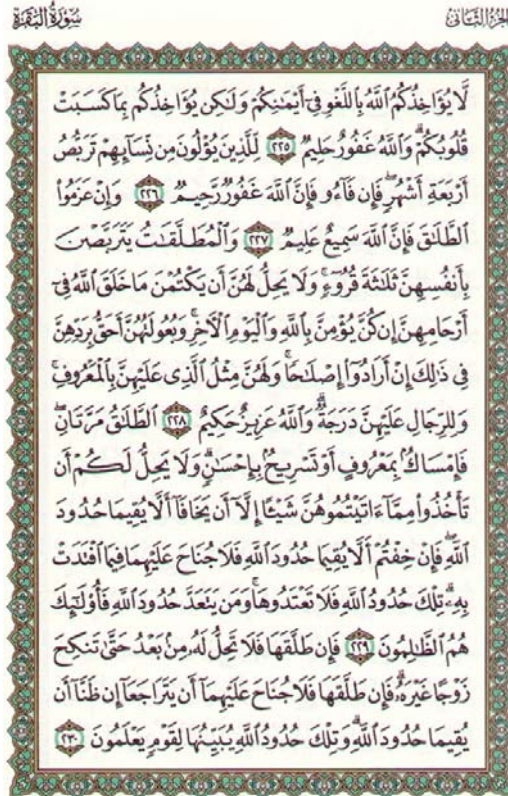 سُورَةُ البَقَرَةِ
الجُزْءُ الثَّانِي
لَّا يُؤَاخِذُكُمُ ٱللَّهُ بِٱللَّغْوِ فِىٓ أَيْمَٰنِكُمْ وَلَٰكِن يُؤَاخِذُكُم بِمَا كَسَبَتْ
قُلُوبُكُمْ ۗ وَٱللَّهُ غَفُورٌ حَلِيمٌ ٢٢٥ لِّلَّذِينَ يُؤْلُونَ مِن نِّسَآئِهِمْ تَرَبُّصُ
أَرْبَعَةِ أَشْهُرٍ ۖ فَإِن فَآءُو فَإِنَّ ٱللَّهَ غَفُورٌ رَّحِيمٌ ٢٢٦ وَإِنْ عَزَمُوا۟
ٱلطَّلَٰقَ فَإِنَّ ٱللَّهَ سَمِيعٌ عَلِيمٌ ٢٢٧ وَٱلْمُطَلَّقَٰتُ يَتَرَبَّصْنَ
بِأَنفُسِهِنَّ ثَلَٰثَةَ قُرُوٓءٍ ۚ وَلَا يَحِلُّ لَهُنَّ أَن يَكْتُمْنَ مَا خَلَقَ ٱللَّهُ فِىٓ
أَرْحَامِهِنَّ إِن كُنَّ يُؤْمِنَّ بِٱللَّهِ وَٱلْيَوْمِ ٱلْءَاخِرِ ۚ وَبُعُولَتُهُنَّ أَحَقُّ بِرَدِّهِنَّ
فِى ذَٰلِكَ إِنْ أَرَادُوٓا۟ إِصْلَٰحًا ۚ وَلَهُنَّ مِثْلُ ٱلَّذِى عَلَيْهِنَّ بِٱلْمَعْرُوفِ ۚ
وَلِلرِّجَالِ عَلَيْهِنَّ دَرَجَةٌ ۗ وَٱللَّهُ عَزِيزٌ حَكِيمٌ ٢٢٨ ٱلطَّلَٰقُ مَرَّتَانِ ۖ
فَإِمْسَاكٌۢ بِمَعْرُوفٍ أَوْ تَسْرِيحٌۢ بِإِحْسَٰنٍ ۗ وَلَا يَحِلُّ لَكُمْ أَن
تَأْخُذُوا۟ مِمَّآ ءَاتَيْتُمُوهُنَّ شَيْـًٔا إِلَّآ أَن يَخَافَآ أَلَّا يُقِيمَا حُدُودَ
ٱللَّهِ ۖ فَإِنْ خِفْتُمْ أَلَّا يُقِيمَا حُدُودَ ٱللَّهِ فَلَا جُنَاحَ عَلَيْهِمَا فِيمَا ٱفْتَدَتْ
بِهِۦ ۗ تِلْكَ حُدُودُ ٱللَّهِ فَلَا تَعْتَدُوهَا ۚ وَمَن يَتَعَدَّ حُدُودَ ٱللَّهِ فَأُو۟لَٰٓئِكَ
هُمُ ٱلظَّٰلِمُونَ ٢٢٩ فَإِن طَلَّقَهَا فَلَا تَحِلُّ لَهُۥ مِنۢ بَعْدُ حَتَّىٰ تَنكِحَ
زَوْجًا غَيْرَهُۥ ۗ فَإِن طَلَّقَهَا فَلَا جُنَاحَ عَلَيْهِمَآ أَن يَتَرَاجَعَآ إِن ظَنَّآ أَن
يُقِيمَا حُدُودَ ٱللَّهِ ۗ وَتِلْكَ حُدُودُ ٱللَّهِ يُبَيِّنُهَا لِقَوْمٍ يَعْلَمُونَ ٢٣٠